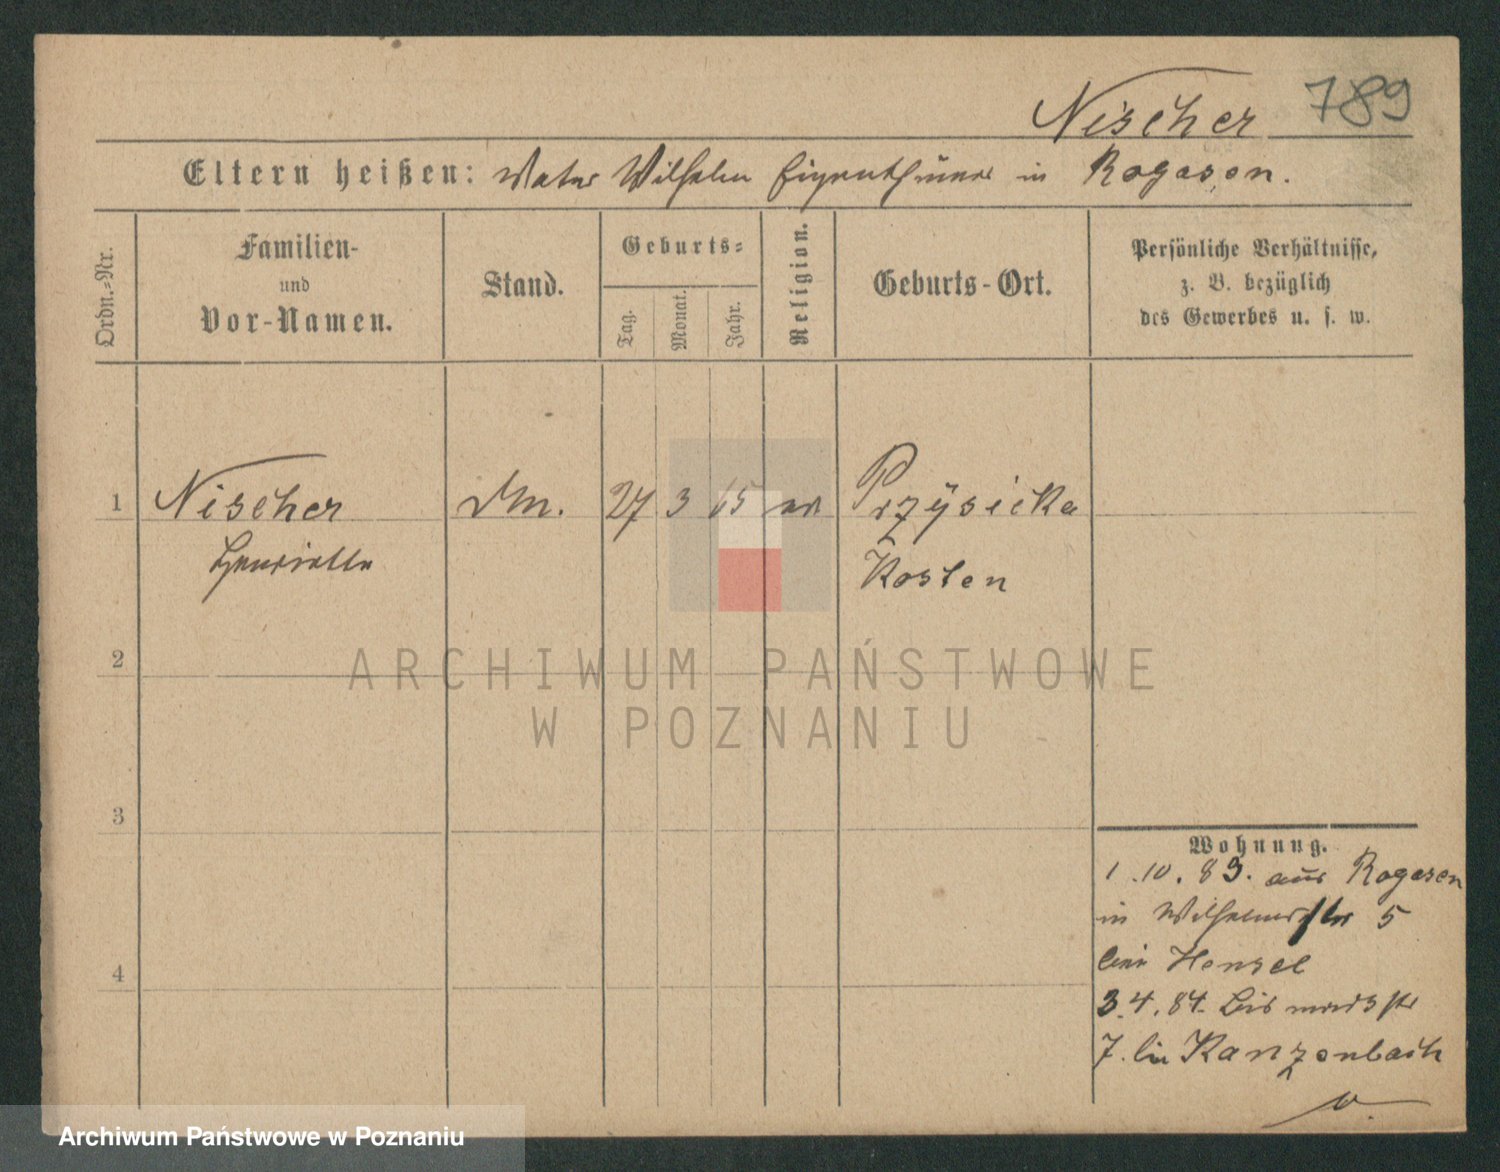 Nischer 789
Eltern heißen: Vater Wilhelm Eigenthümer in Rogasen.
Ordn.-Nr.
Familien-
und
Vor-Namen.
Stand.
Geburts-
Tag.
Monat.
Jahr.
Religion.
Geburts-Ort.
Persönliche Verhältnisse,
z. B. bezüglich
des Gewerbes u. s. w.
1 Nischer 27 3 65 Przysieka
Henriette Kosten
2
3
4
Wohnung.
1.10.83. aus Rogasen
in Wilhelmstr 5
bei Hensel
3.4.84. Bismarckstr
7. bei Kanzenbach
ARCHIWUM PAŃSTWOWE
W POZNANIU
Archiwum Państwowe w Poznaniu